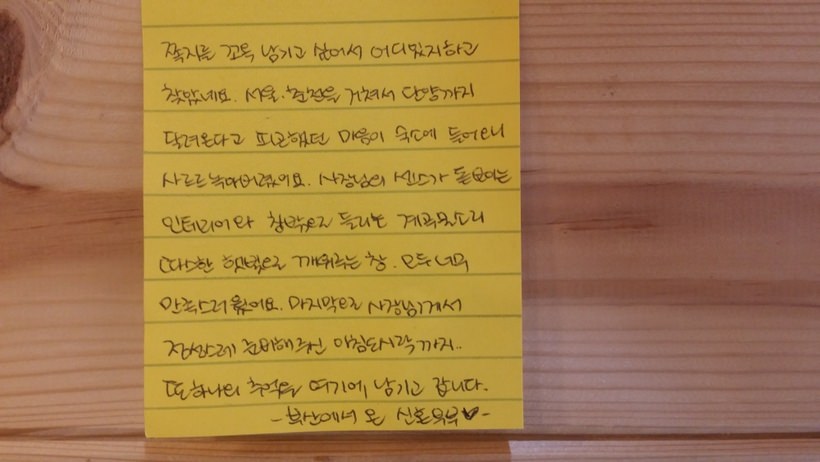 쪽지를 꼬옥 남기고 싶어서 어디있지하고
찾았네요. 서울·춘천을 거쳐서 단양까지
달려온다고 피곤했던 마음이 숙소에 들어오니
사르르녹아버렸어요. 사장님의 센스가 돋보이는
인테리어와 창밖으로 들리는 계곡물소리
따스한 햇볕으로 깨워주는 창. 모두 너무
만족스러웠어요. 마지막으로 사장님께서
정성스레 준비해주신 아침도시락까지..
또하나의 추억을 여기에 남기고 갑니다.
-부산에서 온 신혼부부♥-